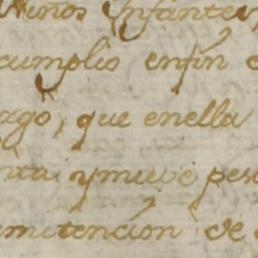 niños Infante
cumplio enfin
rgo, que enella
nta ynueve pes
mitencion de